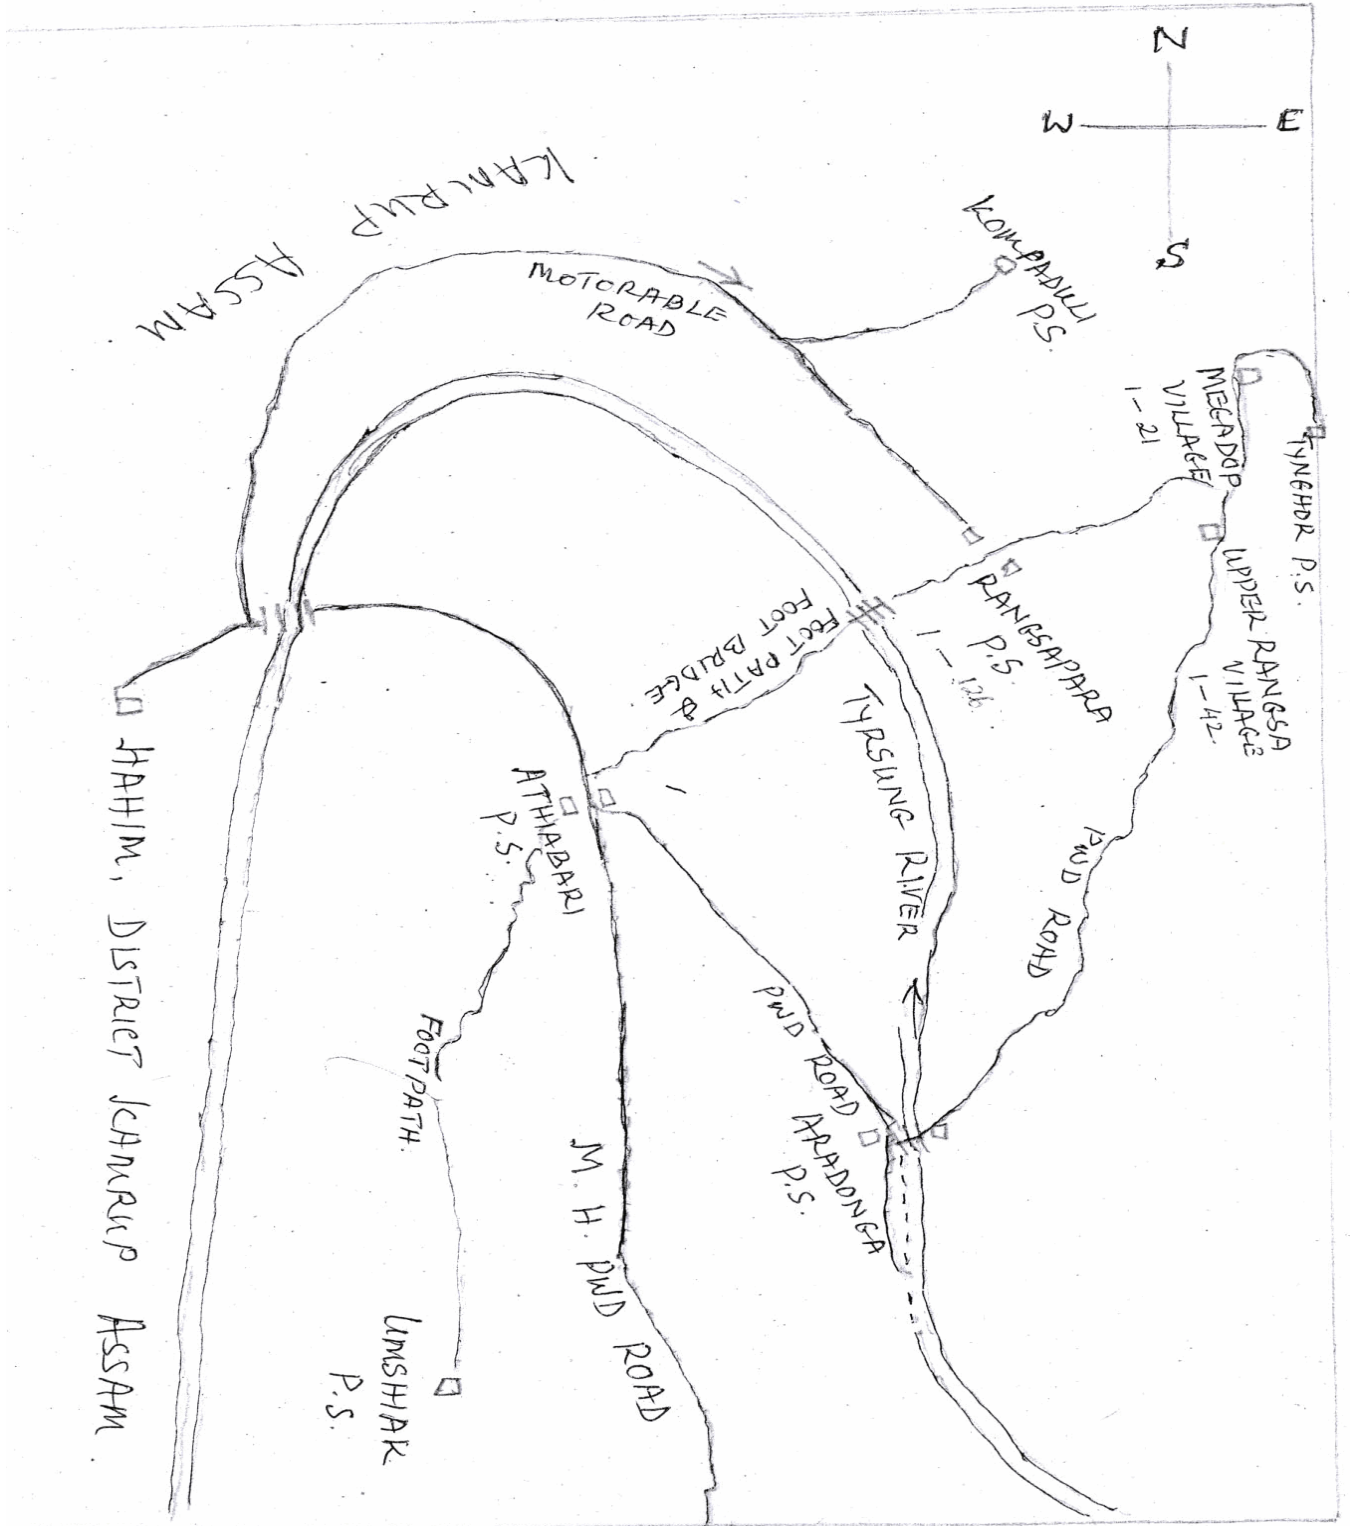 N
W
E
S
KAMRUP ASSAM
MOTORABLE
ROAD
KOMPADULI
P.S.
MEGADOP
VILLAGE
1-21
TYNGHOR P.S.
UPPER RANGSA
VILLAGE
1-42.
RANGSAPARA
P.S.
1-126.
FOOT PATH &
FOOT BRIDGE
TYRSUNG RIVER
PWD ROAD
ATHIABARI
P.S.
PWD ROAD
ARADONGA
P.S.
FOOTPATH.
M. H. PWD ROAD
UMSHIAK
P.S.
HAHIM, DISTRICT KAMRUP ASSAM